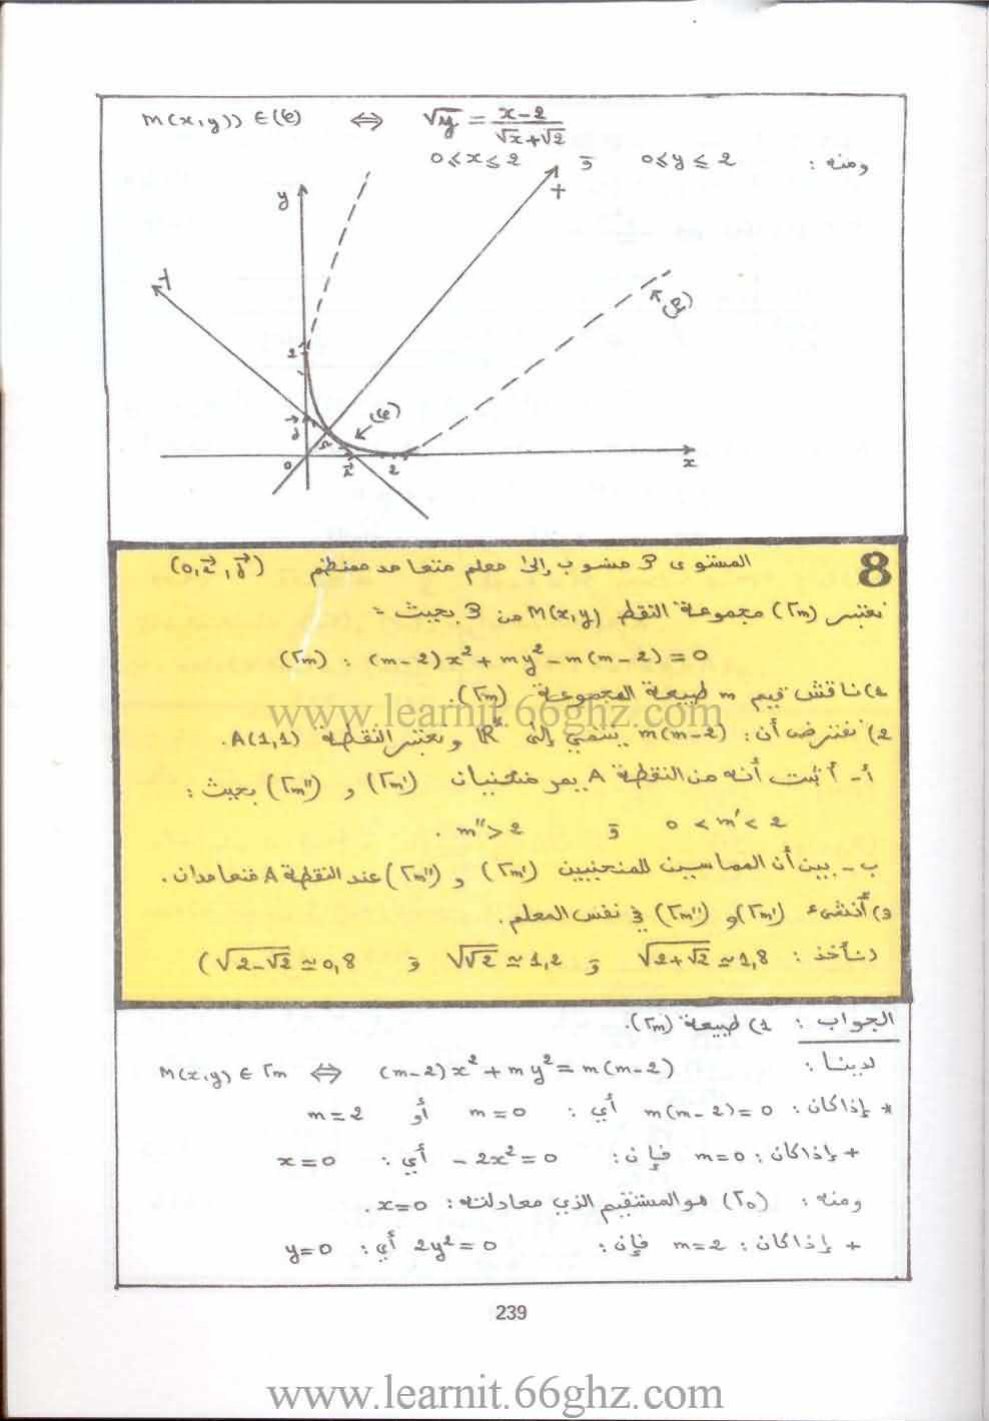 M(x,y)) ∈ (C) ⇔ √y = (x-2)/(√x+√2)
ومنه : 0≤y≤2 و 0≤x≤2
y
x
2
0
2
8 المستوى P منسوب إلى معلم متعامد ممنظم (o, i⃗, j⃗)
نعتبر (Γm) مجموعة النقط M(x,y) من P بحيث :
(Γm) : (m-2)x² + my² - m(m-2) = 0
1) ناقش قيم m طبيعة المجموعة (Γm).
www.learnit.66ghz.com
2) نفترض أن : m(m-2) ينتمي إلى ℝ* ونعتبر النقطة A(1,1).
أ- أثبت أنه من النقطة A يمر منحنيان (Γm') و (Γm'') بحيث :
0 < m' < 2 و m'' > 2 .
ب - بين أن المماسين للمنحنيين (Γm') و (Γm'') عند النقطة A متعامدان.
3) أنشىء (Γm') و (Γm'') في نفس المعلم.
(نأخذ : √(2+√2) ≃ 1,8 و √√2 ≃ 1,2 و √(2-√2) ≃ 0,8)
الجواب : 1) طبيعة (Γm).
لدينا : M(x,y) ∈ Γm ⇔ (m-2)x² + my² = m(m-2)
* إذا كان : m(m-2) = 0 أي : m = 0 أو m = 2
+ إذا كان : m=0 فإن : -2x² = 0 أي : x=0
ومنه : (Γ0) هو المستقيم الذي معادلته : x=0.
+ إذا كان : m=2 فإن : 2y² = 0 أي : y=0
239
www.learnit.66ghz.com